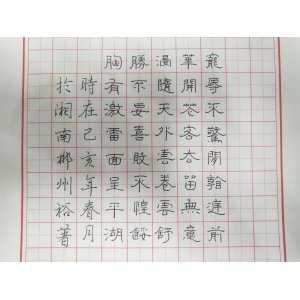 寵辱不驚閒翰庭前
華開花客去留無意
漫隨天外雲卷雲舒
勝不妄喜敗不惶餒
胸有激雷面呈平湖
時在己亥年春月
於湘南郴州裕著